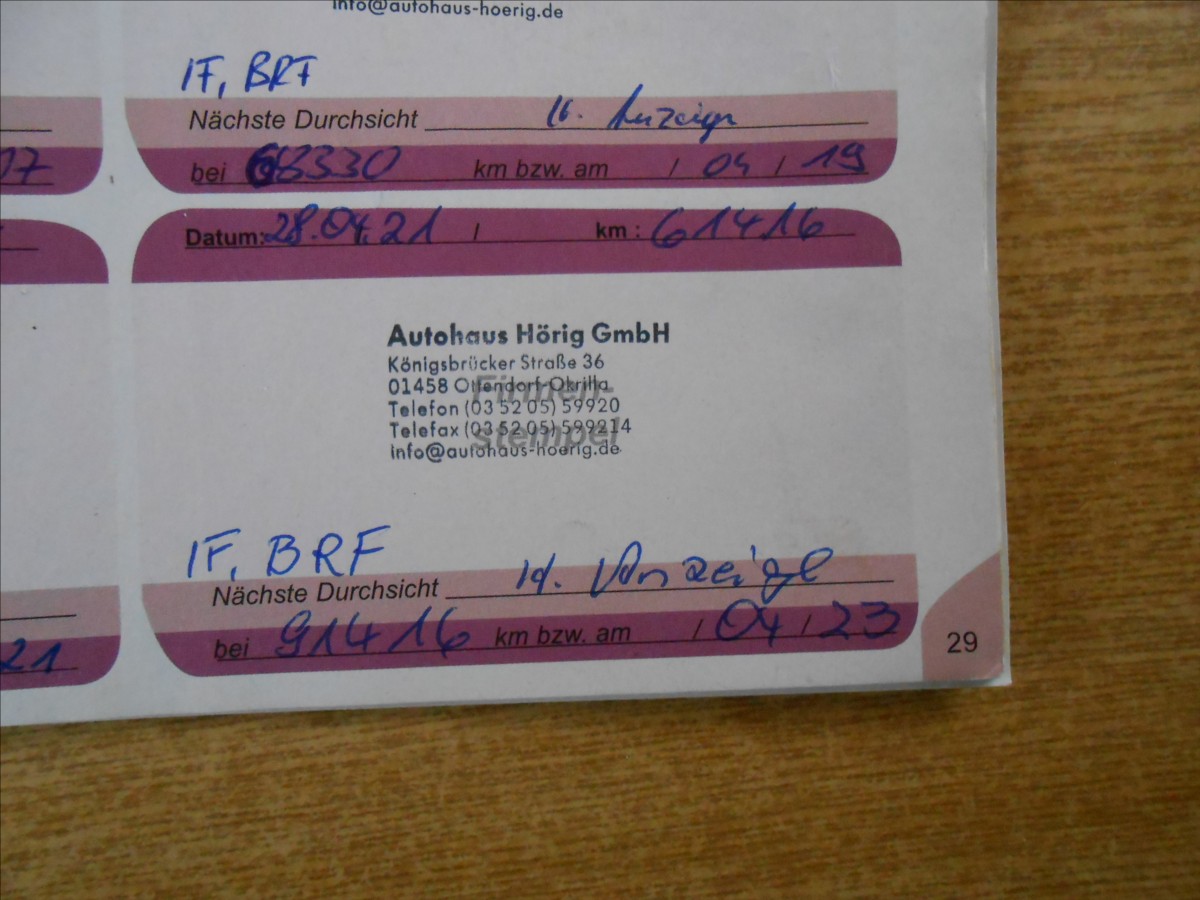 info@autohaus-hoerig.de
IF, BRF
Nächste Durchsicht lt. Anzeige
07
bei 68330 km bzw. am / 04 / 19
Datum: 28.04.21 / km : 61416
Autohaus Hörig GmbH
Königsbrücker Straße 36
01458 Ottendorf-Okrilla
Firmen-
Telefon (03 52 05) 59920
Telefax (03 52 05) 599214
stempel
info@autohaus-hoerig.de
IF, BRF
Nächste Durchsicht lt. Anzeige
21
bei 91416 km bzw. am / 04 / 23
29